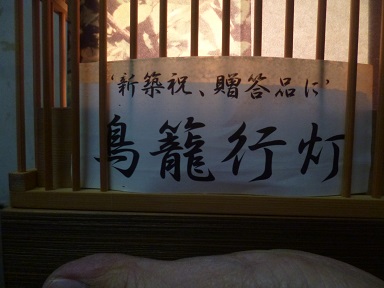 “新築祝、贈答品に”
鳥籠行灯